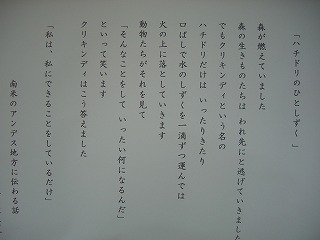 「ハチドリのひとしずく」
森が燃えていました
森の生きものたちは われ先にと逃げていきました
でもクリキンディという名の
ハチドリだけは いったりきたり
口ばしで水のしずくを一滴ずつ運んでは
火の上に落としていきます
動物たちがそれを見て
「そんなことをして いったい何になるんだ」
といって笑います
クリキンディはこう答えました
「私は、私にできることをしているだけ」
南米のアンデス地方に伝わる話